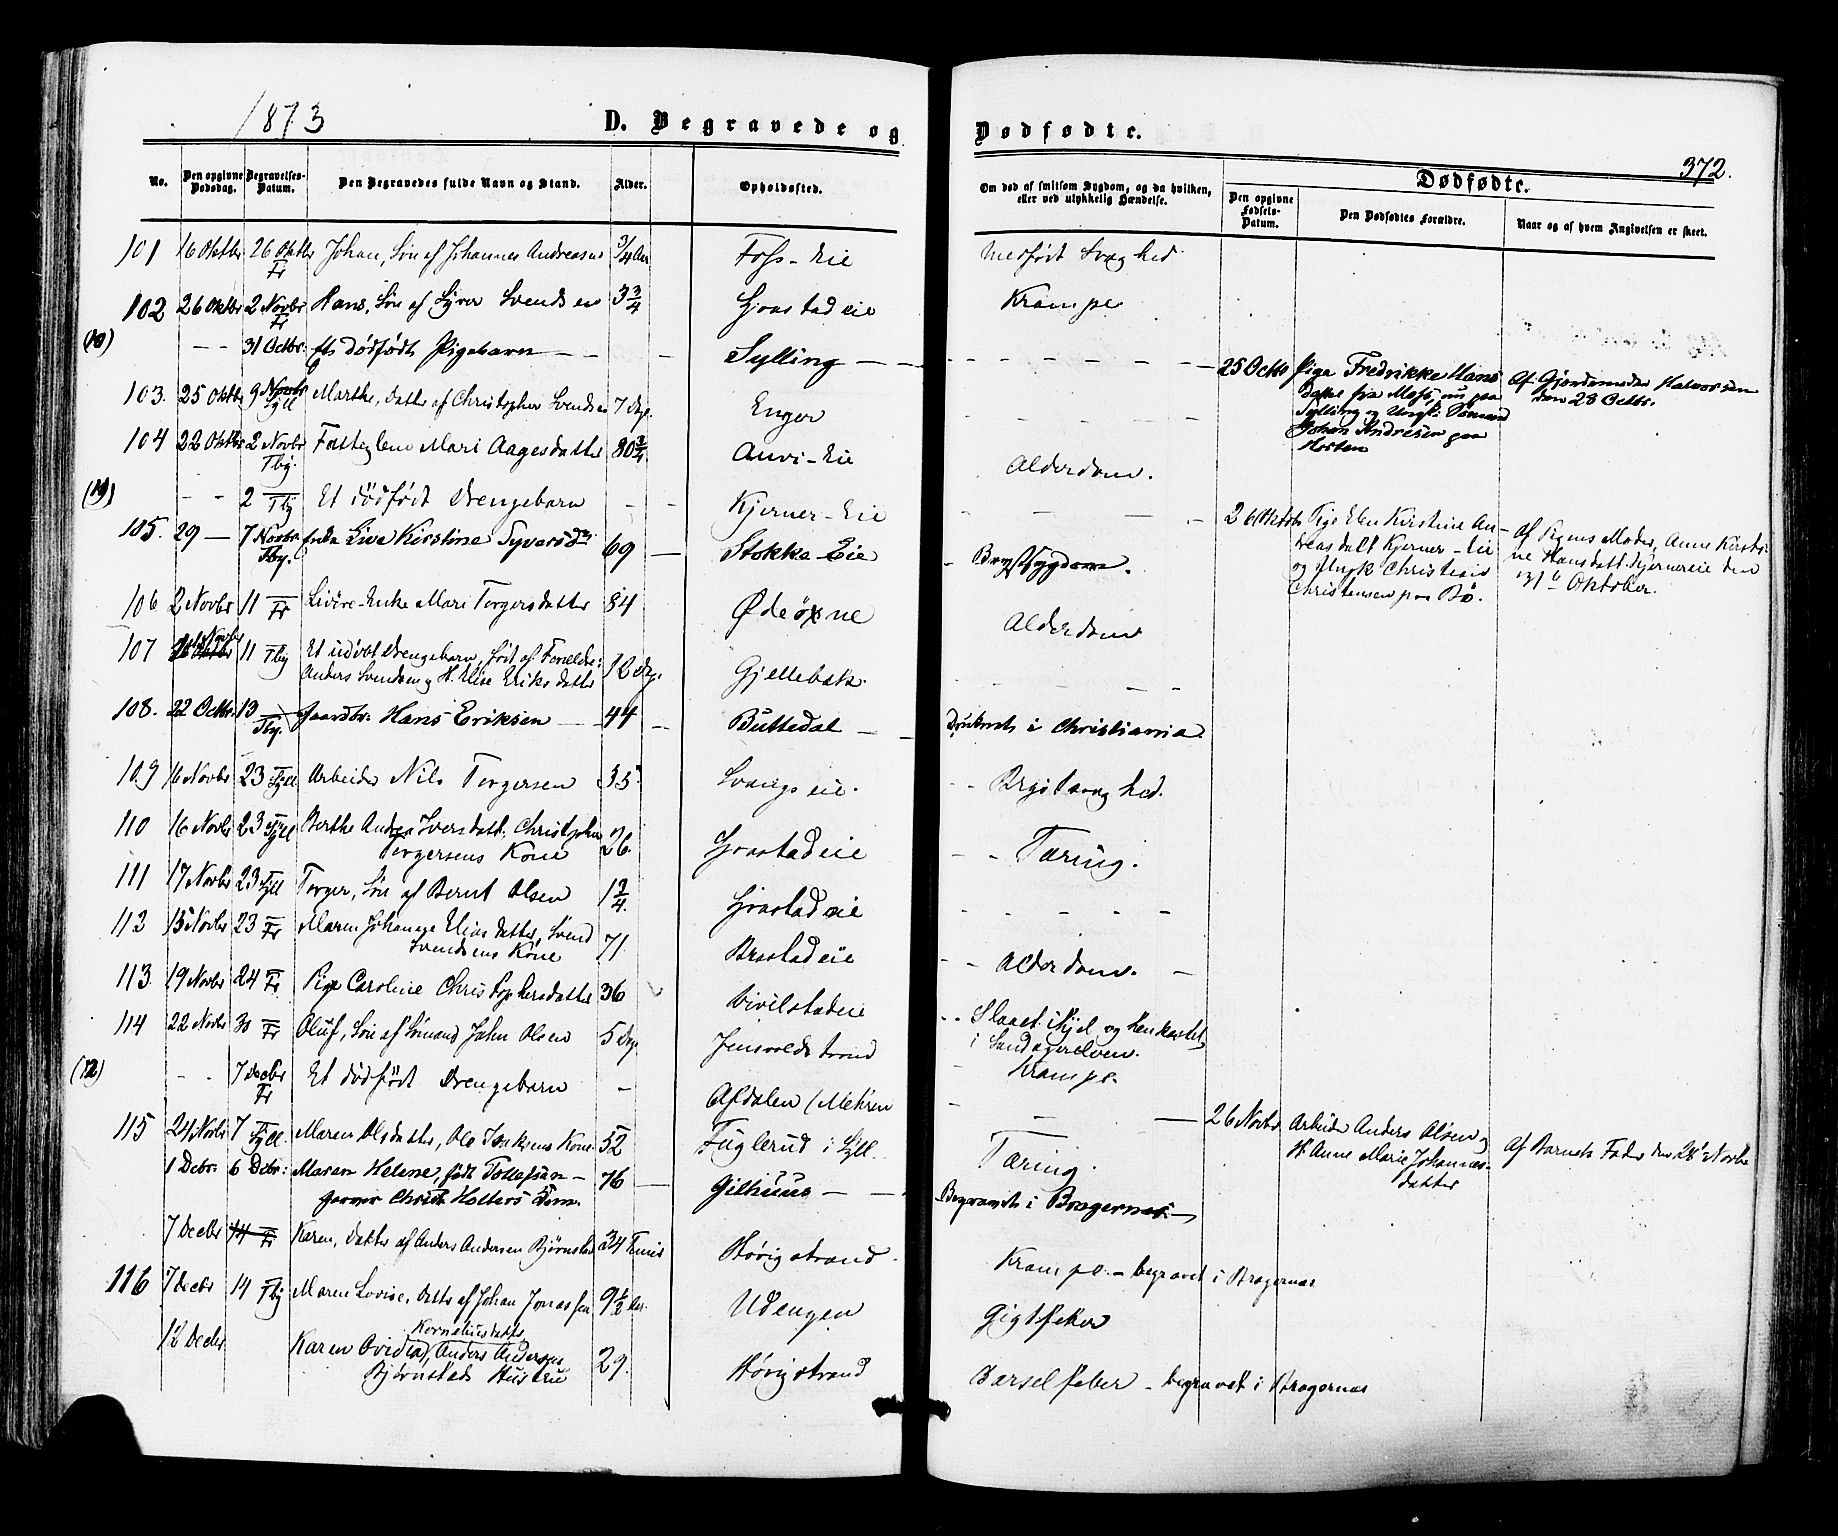 1873
D. Begravede og Dødfødte.
372.
No.
Den opgivne Dødsdag.
Begravelses-Datum.
Den Begravedes fulde Navn og Stand.
Alder.
Opholdssted.
Om død af smitsom Sygdom, og da hvilken, eller ved ulykkelig Hændelse.
Dødfødte.
Den opgivne Fødsels-Datum.
Den Dødfødtes Forældre.
Naar og af hvem Angivelsen er skeet.
101 16 Oktbr 26 Oktbr Fr Johan, Søn af Johannes Andreasen 3/4 Aar Foss-Eie Medfødt Svaghed
102 26 Oktbr 2 Novbr Fr Hans, Søn af Syver Svendsen 3 3/4 Gjrstadeie Krampe
(10) - - 31 Octbr: Et dødfødt Pigebarn - - Sylling - - 25 Octbr Pige Fredrikke Hans
Datter fra Moss, nu paa
Sylling og Ungk: Sømand
Johan Andresen paa
Horten
Af Gjordemoder Halvorsen
den 28 Octbr.
103. 25 Oktbr 9 Novbr Syll Marthe, Datter af Christopher Svendsen 7 Dage Enger
104 22 Oktbr 2 Novbr Tbg. Fattiglem Mari Aagesdatter 80 3/4 Auvi-Eie Alderdom.
(11) - - 2 - Tbg Et dødfødt Drengebarn - - Kjerner-Eie - - 26 Oktbr Pige Elen Kirstine An-
dreasdatt Kjerner-Eie
og Ungk Christian
Christensen paa Bø.
af Pigens Moder, Anne Kirsti-
ne Hansdatt. Kjernereie den
31te Oktober.
105. 29 - 7 Novbr Tbg. Enke Live Kirstine Syversdr 69 - Stokke-Eie Brystsygdom.
106 2 Novbr 11 - Fr Enke Mari Torgersdatter 84 Ødeøxne Alderdom
107 Novbr 11 Tbg Et udøbt Drengebarn, født af Forældre:
Anders Svendsen og H. Elise Eriksdatter 12 Dg. Gjellebæk.
108. 22 Octbr. 13 - Tbg. Gaardbr. Hans Eriksen - 44 - Buttedal - - Druknet i Christiania
109 16 Novbr 23 Syll Arbeider Nils Torgersen 35 Svangseie. - - Brystsvaghed.
110 16 Novbr 23 Syll Berthe Andrea Iversdatt. Christopher
Torgersens Kone 26. Gjrstadeie - - Tæring.
111 17 Novbr 23 Syll Torger, Søn af Bernt Olsen 1 3/4. Gjrstadeie - - - - -
112 15 Novbr 23 Fr Maren Johanne Eliasdatter, Svend
Svendsens Kone 71. Brastadeie - - Alderdom. -
113. 19 Novbr 24 Fr Pige Caroline Christophersdatter 36 Vivilstadeie - - Slaaet ihjel og henkastet
i Sandagerelven.
114 22 Novbr 30 Fr Oluf, Søn af Sømand John Olsen 5 Dge. Jensvoldstrand - Krampe.
(12) - - 7 Decbr Fr Et dødfødt Drengebarn - Afdalen (Mehren - - - 26 Novbr Arbeider Anders Olsen og
H. Anne Marie Johannes-
datter
Af Barnets Fader den 28 Novbr
115 24 Novbr 7 Syll Maren Olsdatter, Ole Kone 52 Fuglerud i Syll. Tæring.
1 Decbr. 6 Decbr: Maren Helene, født Tollefsen -
Christ Holters Enke. 76 - Gilhuus - - Begravet i Bragernes. -
7 Decbr 14 Fr Karen, Datter af Anders Andersen Bjørnstad 3/4 Time Høvigstrand. Krampe. - begravet i Bragernæs
116 7 Decbr 14 Tbg Maren Lovise, Datter af Johan Jonassen 9 1/2 Aar. Udengen Gigtfeber
12 Decbr Korneliusdatter,
Karen Ovidia, Anders Andersens
Bjørnstads Hustru 29. Høvigstrand Barselfeber - begravet i Bragernæs